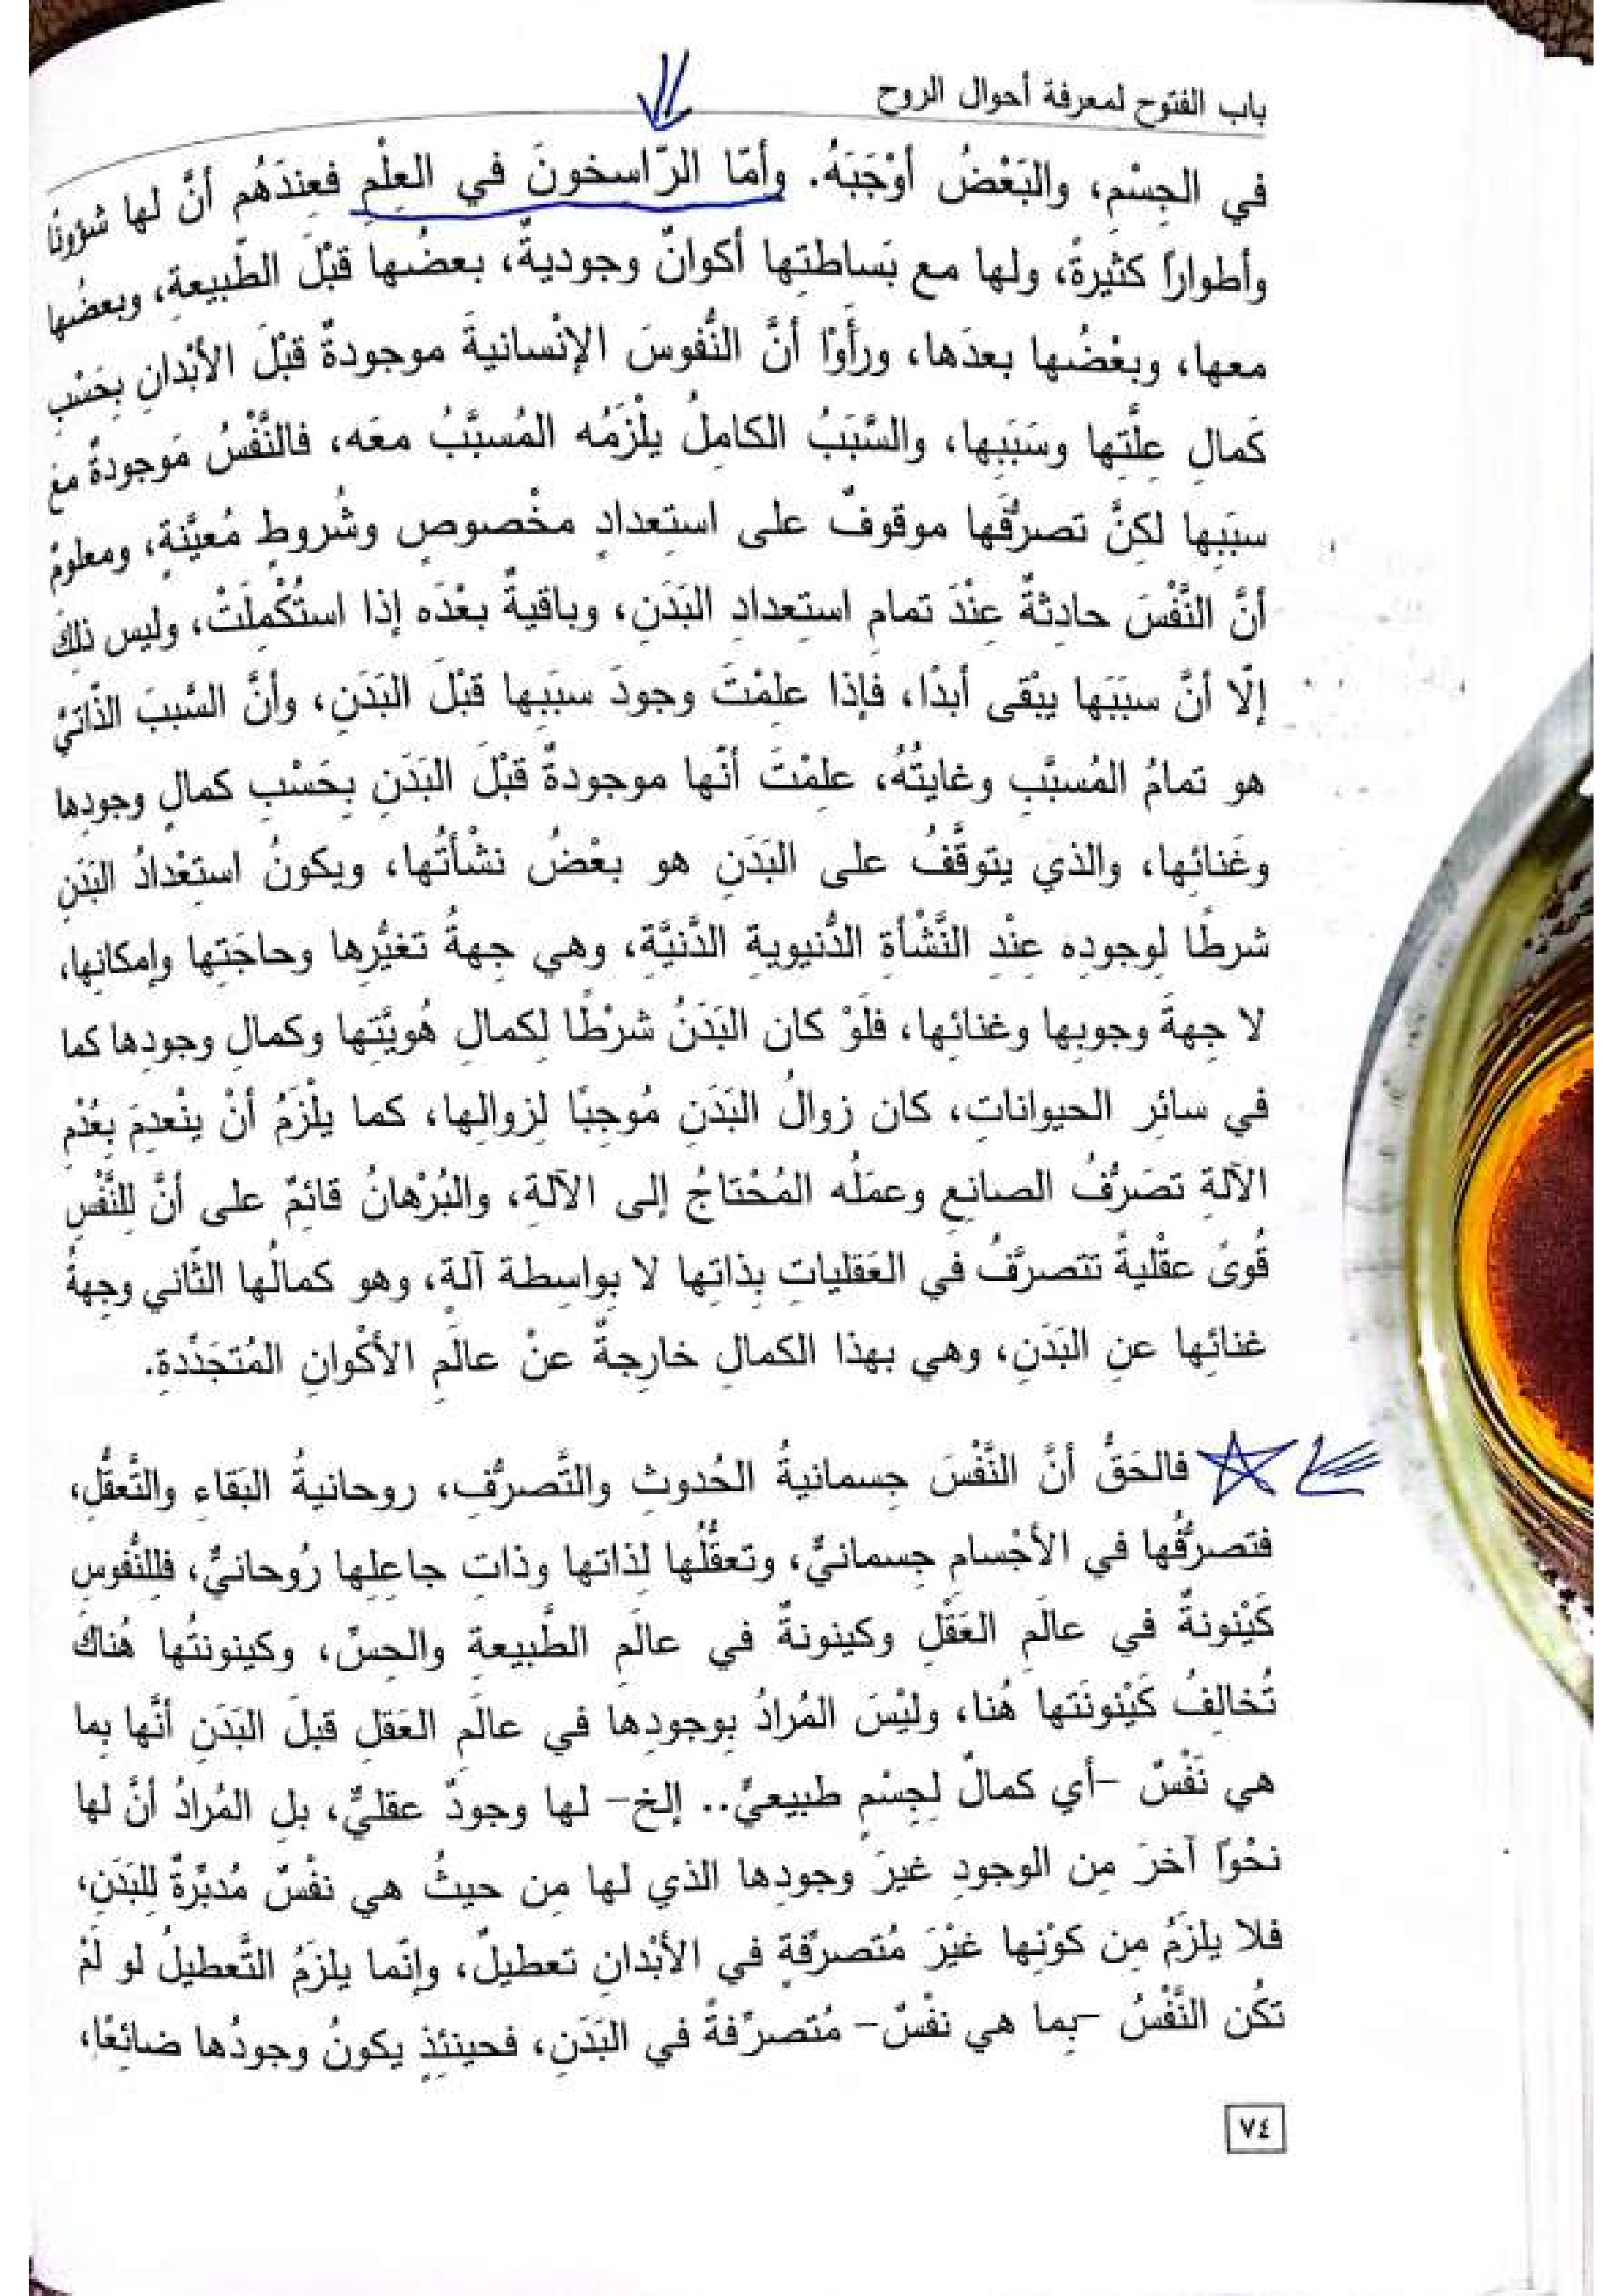 باب الفتوح لمعرفة أحوال الروح
في الجِسْمِ، والبَعْضُ أوْجَبَهُ. وأمّا الرّاسخونَ في العِلْمِ فعِندَهُم أنَّ لها شؤونًا
وأطوارًا كثيرةً، ولها مع بَساطتِها أكوانٌ وجوديةٌ، بعضُها قبْلَ الطّبيعةِ، وبعضُها
معها، وبعْضُها بعدَها، ورأَوْا أنَّ النُّفوسَ الإنْسانيةَ موجودةٌ قبْلَ الأبْدانِ بِحَسْبِ
كَمالِ عِلَّتِها وسَبَبِها، والسَّبَبُ الكاملُ يلْزَمُه المُسبَّبُ معَه، فالنَّفْسُ مَوجودةٌ معَ
سبَبِها لكِنَّ تصرُّفَها موقوفٌ على استِعدادٍ مخْصوصٍ وشُروطٍ مُعيَّنةٍ، ومعلومٌ
أنَّ النَّفْسَ حادِثةٌ عِنْدَ تمامِ استِعدادِ البَدَنِ، وباقيةٌ بعْدَه إذا استُكْمِلَتْ، وليس ذلِكَ
إلّا أنَّ سبَبَها يبْقى أبدًا، فإذا علِمْتَ وجودَ سبَبِها قبْلَ البَدَنِ، وأنَّ السَّببَ الذّاتيَّ
هو تمامُ المُسبَّبِ وغايتُهُ، علِمْتَ أنّها موجودةٌ قبْلَ البَدَنِ بِحَسْبِ كمالِ وجودِها
وغَنائِها، والذي يتوقَّفُ على البَدَنِ هو بعْضُ نشْأتُها، ويكونُ استِعْدادُ البَدَنِ
شرطًا لِوجودِه عِنْدِ النَّشْأةِ الدُّنيويةِ الدَّنيَّةِ، وهي جِهةُ تغيُّرِها وحاجَتِها وإمكانِها،
لا جِهةَ وجوبِها وغنائِها، فلَوْ كان البَدَنُ شرْطًا لِكمالِ هُويَّتِها وكمالِ وجودِها كما
في سائِرِ الحيواناتِ، كان زوالُ البَدَنِ مُوجِبًا لِزوالِها، كما يلْزَمُ أنْ ينْعدِمَ بِعُدْمِ
الآلةِ تصَرُّفُ الصانِعِ وعمَلُه المُحْتاجُ إلى الآلةِ، والبُرْهانُ قائِمٌ على أنَّ لِلنَّفْسِ
قُوىً عقْليةً تتصرَّفُ في العَقلياتِ بِذاتِها لا بِواسِطة آلةٍ، وهو كمالُها الثّاني وجِهةُ
غنائِها عنِ البَدَنِ، وهي بهذا الكمالِ خارِجةٌ عنْ عالَمِ الأكْوانِ المُتجَدِّدةِ.
فالحَقُّ أنَّ النَّفْسَ جِسمانيةُ الحُدوثِ والتَّصرُّفِ، روحانيةُ البَقاءِ والتَّعقُّلِ،
فتصرُّفُها في الأجْسامِ جِسمانيٌّ، وتعقُّلُها لِذاتها وذاتِ جاعِلِها رُوحانيٌّ، فلِلنُّفوسِ
كَيْنونةٌ في عالَمِ العَقْلِ وكينونةٌ في عالَمِ الطَّبيعةِ والحِسِّ، وكينونتُها هُناكَ
تُخالِفُ كَيْنونَتها هُنا، وليْسَ المُرادُ بِوجودِها في عالَمِ العَقلِ قبلَ البَدَنِ أنَّها بِما
هي نَفْسٌ –أي كمالٌ لِجِسْمٍ طبيعيٍّ.. إلخ– لها وجودٌ عقليٌّ، بلِ المُرادُ أنَّ لها
نحْوًا آخرَ مِن الوجودِ غيرَ وجودِها الذي لها مِن حيثُ هي نفْسٌ مُدبِّرةٌ لِلبَدَنِ،
فلا يلزَمُ مِن كوْنِها غيْرَ مُتصرِّفةٍ في الأبْدانِ تعطيلٌ، وإنّما يلزَمُ التَّعطيلُ لو لَمْ
تكُن النَّفْسُ –بِما هي نفْسٌ– مُتصرِّفةً في البَدَنِ، فحينئِذٍ يكونُ وجودُها ضائِعًا،
٧٤